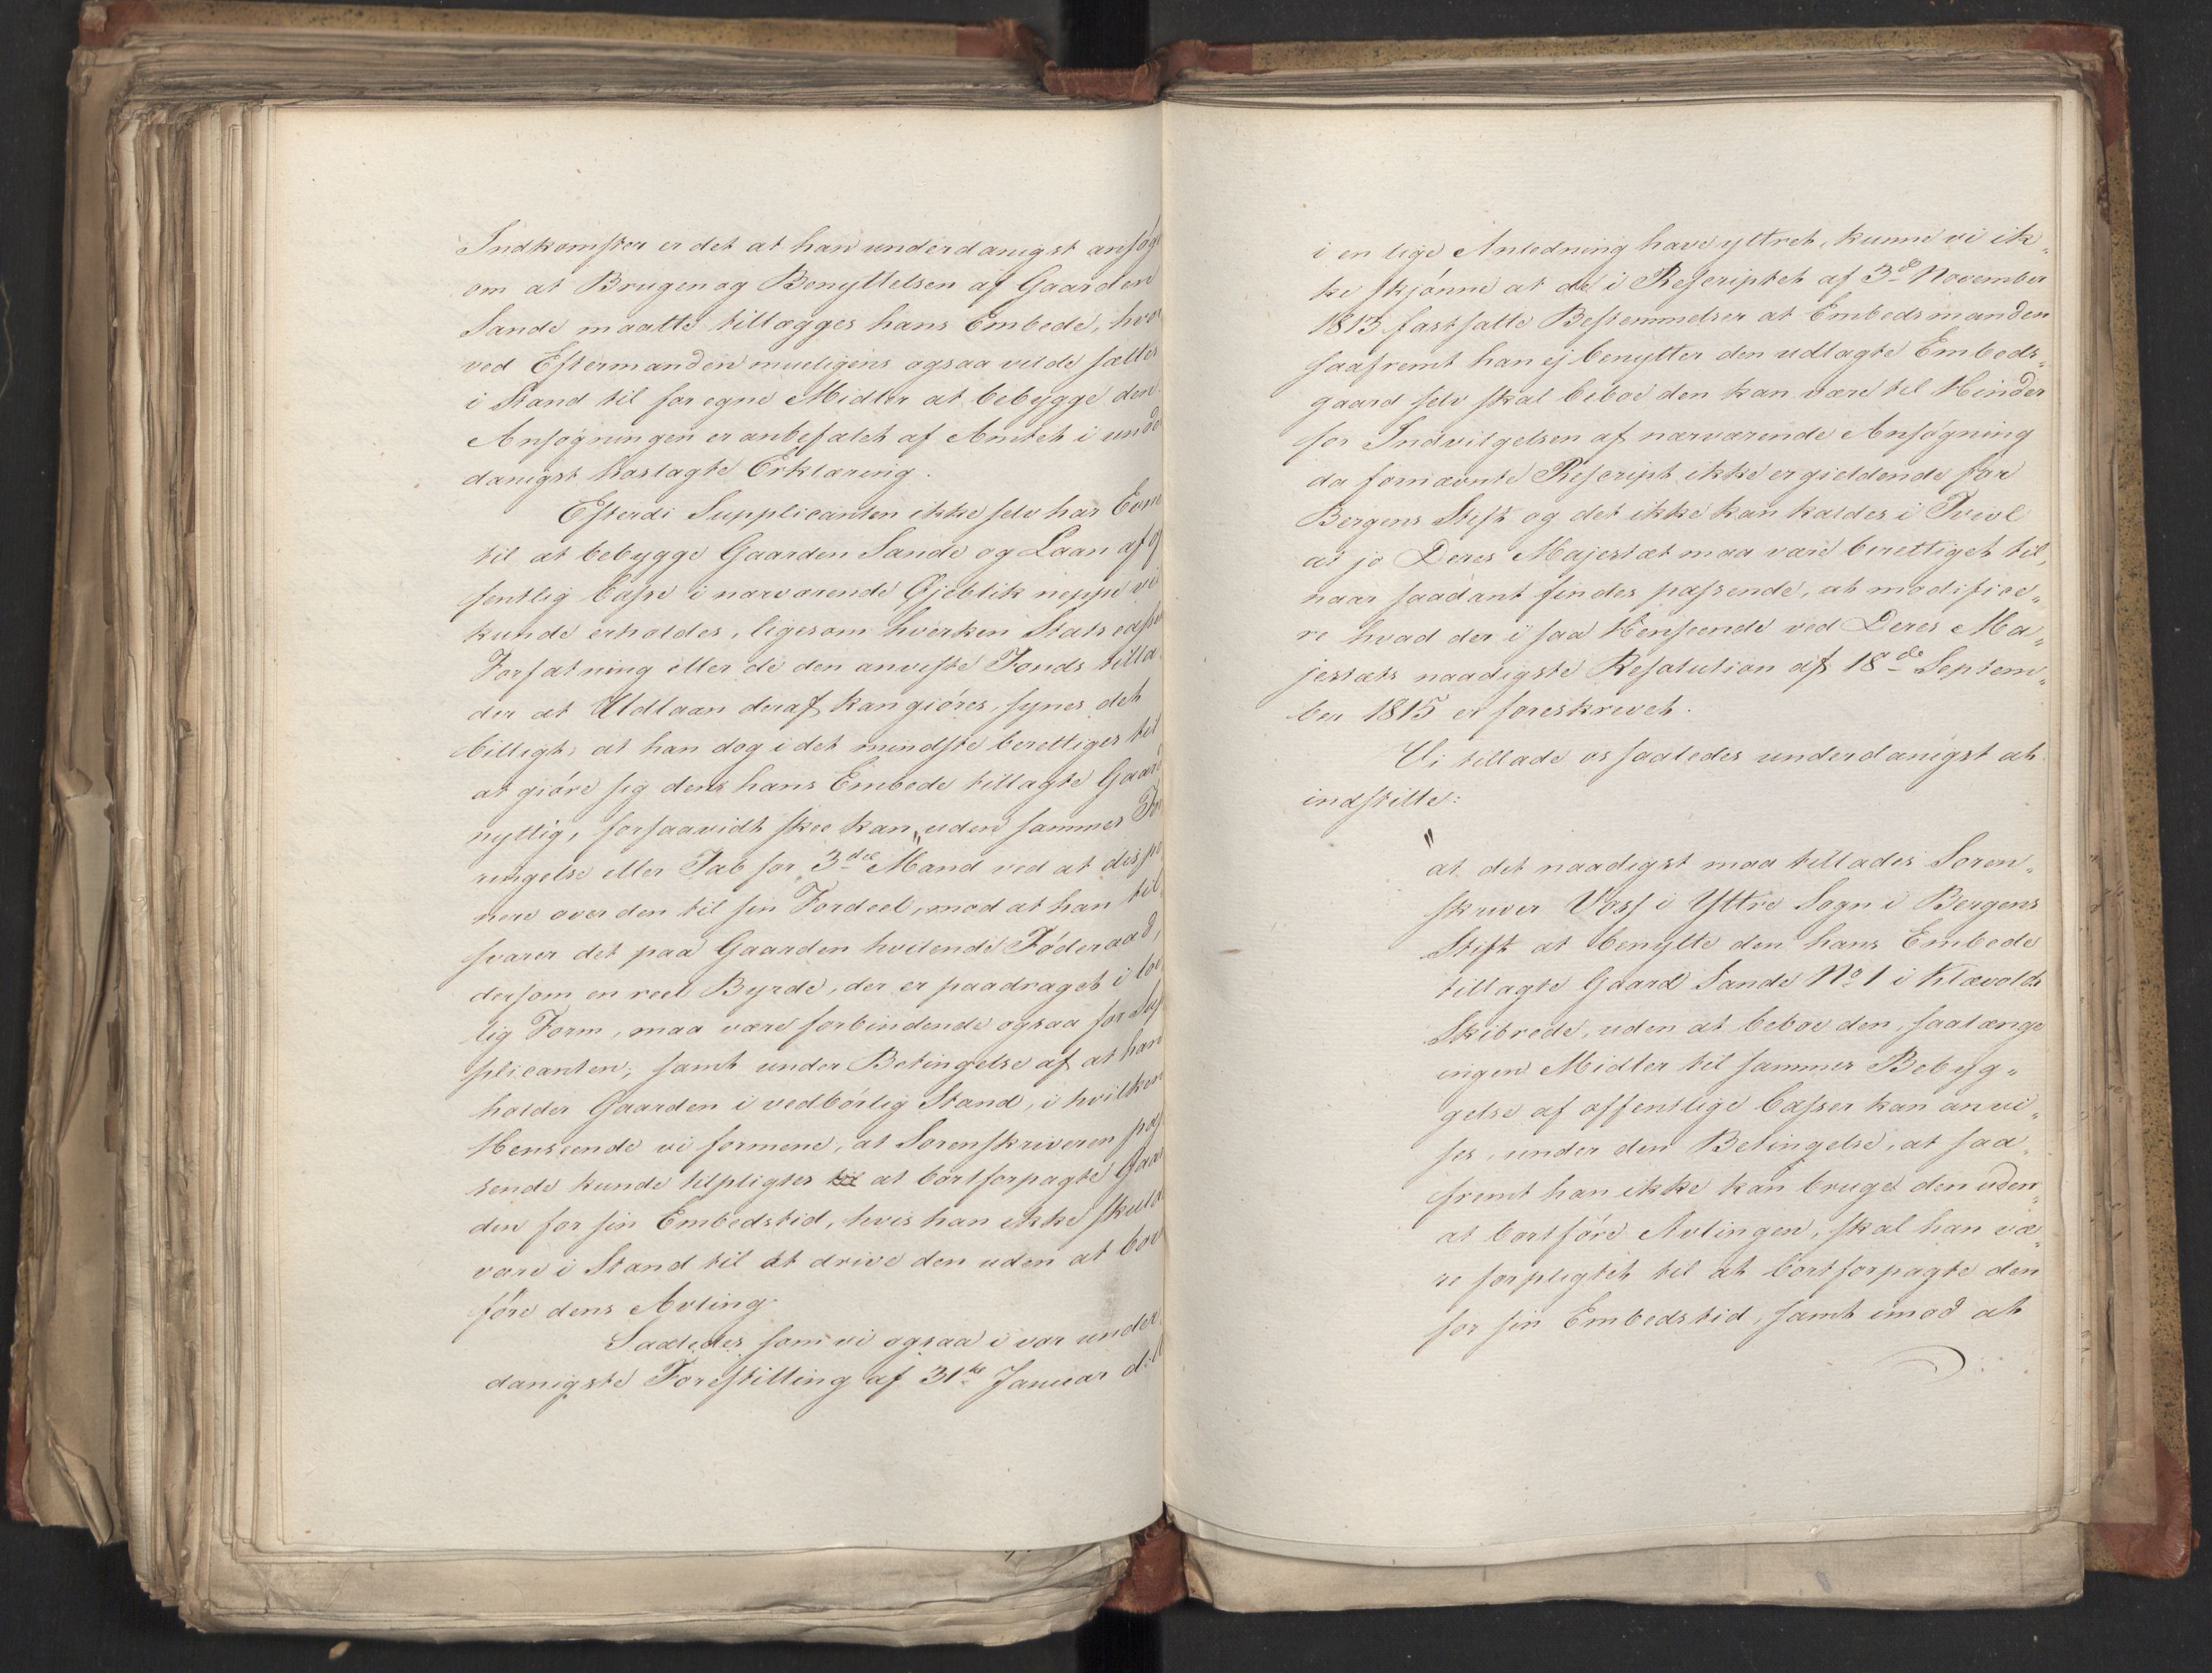 Indkomster er det at han underdanigst ansøg
om at Brugen og Benyttelsen af Gaarden
Sande maatte tillægges hans Embede, hvor
ved Eftermanden mueligens ogsaa vilde sættes
i Stand til for egne Midler at bebygge den.
Ansøgningen er anbefalet af Amtet i unde
danigst hoslagte Erklæring.
Efterdi Supplicanten ikke selv har Evne
til at bebygge Gaarden Sande og Laan af of
fentlig Casse i nærværende Øjeblik neppe vi
kunde erholdes, ligesom hverken Statscasse
Forfatning eller de den anviste Fonds tilla
der at Udlaan deraf kan giøres, synes det
billigt, at han dog i det mindste berettiges til
at giøre sig dens hans Embede tillagte Gaard
nyttig, forsaavidt skee kan, uden sammes For
ringelse eller Tab for 3die Mand ved at dispo
nere over den til sin Fordeel, mod at han til
svarer det paa Gaarden hvilende Føderaad,
dersom en reel Byrde, der er paadraget i lov
lig Form, maa være forbindende ogsaa for Sup
plicanten; samt under Betingelse af at han
holder Gaarden i vedbørlig Stand, i hvilken
Henseende vi formene, at Sorenskriveren pas
sende kunde tilpligtes til at bortforpagte Gaar
den for sin Embedstid, hvis han ikke skulde
være i Stand til at drive den uden at bort
føre dens Avling.
Saaledes som vi ogsaa i vor under
danigste Forestilling af 31te Januar d:A
i en lige Anledning have yttret, kunne vi ik„
ke skjønne at de i Rescriptet af 3d November
1813 fastsatte Bestemmelser at Embedsmanden
saafremt han ej benytter den udlagte Embeds„
gaard selv skal beboe den kan være til Hinder
for Indvilgelsen af nærværende Ansøgning
da fornævnte Rescript ikke er gieldende for
Bergens Stift og det ikke kan kaldes i Tvivl
at jo Deres Majestæt maa være berettiget til,
naar saadant findes passende, at modifice„
re hvad der i saa Henseende ved Deres Ma„
jestæts naadigste Resolution af 18de Septem„
ber 1815 er foreskrevet.
Vi tillade os saaledes underdanigst at
indstille:
"at det naadigst maa tillades Soren„
skriver Voss i Yttre Sogn i Bergens
Stift at benytte den hans Embede
tillagte Gaard Sande No 1 i Klævolds
Skibrede, uden at beboe den, saalænge
ingen Midler til sammes Bebyg„
gelse af offentlige Casser kan anvi„
ses, under den Betingelse, at saa„
fremt han ikke kan bruge den uden„
at bortføre Avlingen, skal han væ„
re forpligtet til at bortforpagte den
for sin Embedstid, samt imod at